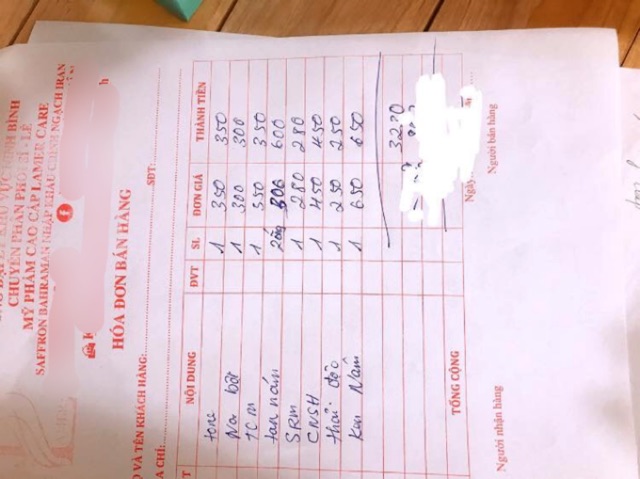 CHUYÊN PHÂN PHỐI SỈ - LẺ
MỸ PHẨM CAO CẤP LAMER CARE
SAFFRON BAHRAMAN NHẬP KHẨU CHÍNH NGẠCH IRAN
HÓA ĐƠN BÁN HÀNG
Ọ VÀ TÊN KHÁCH HÀNG:
SĐT:
A CHỈ:
T NỘI DUNG ĐVT SL ĐƠN GIÁ THÀNH TIỀN
tone 1 350 350
Na bột 1 300 300
TCM 1 350 350
tan nám 300 600
SRM 1 280 280
CNSH 1 450 450
thải độc 1 250 250
Kem Nám 1 650 650
3230
TỔNG CỘNG
Ngày
Người nhận hàng
Người bán hàng